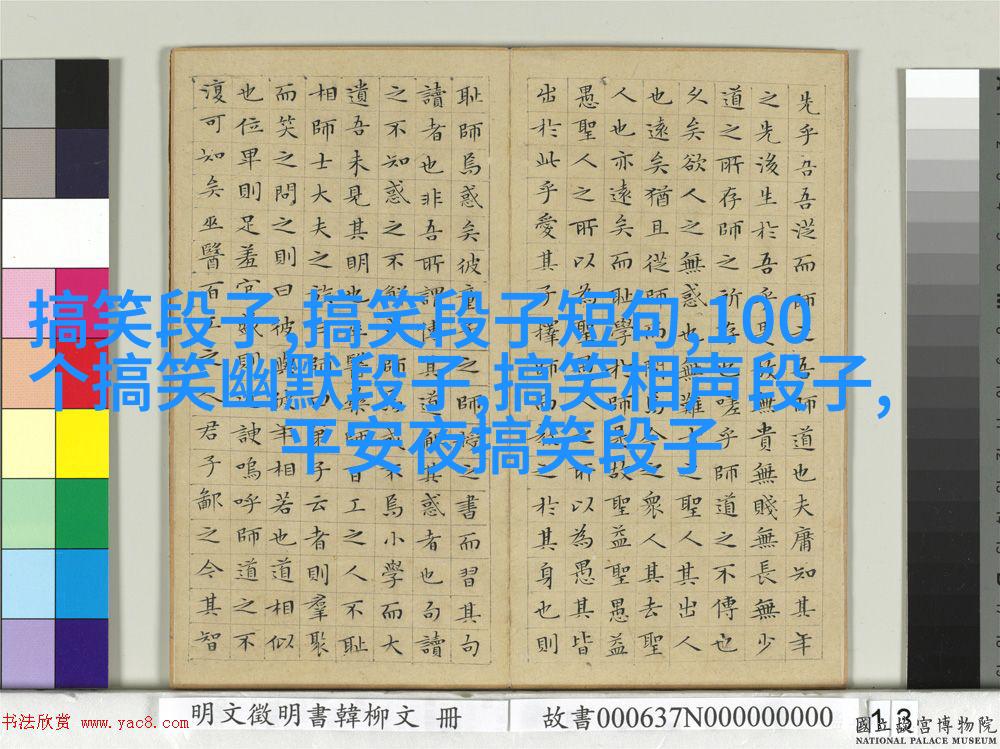 搞笑段子,搞笑段子短句,100
个搞笑幽默段子,搞笑相声段子,
平安夜搞笑段子
先乎吾吾從而師之吾師道也夫庸知其年
之先後生於吾乎是故無貴無賤無長無少
道之所存師之所存也嗟乎師道之不傳也
久矣欲人之無惑也無難之聖人其出人
也遠矣猶且從師而問焉今之衆人其去聖
人也亦遠矣而恥學於師是故聖益聖愚益
愚聖人之所以為聖愚人之所以為愚其皆
出於此乎愛其子擇師而教之於其身也則
恥師焉惑矣彼童子之師授之書而習其句
讀者也非吾所謂傳其道解其惑者也句讀
之不知惑之不解或師焉或不焉小學而大
遺吾未見其明也巫醫樂師百工之人不恥
相師士大夫之族曰師曰弟子云者則羣聚
而笑之問之則曰彼與彼年相若也道相似
也位卑則足羞官盛則近諛嗚呼師道之不
復可知矣巫醫百工之人君子鄙之今其智
明文徵明書韓柳文 冊
故書000637N000000000
13
书法欣赏 www.yac8.com
國立故宮博物院
NATIONAL PALACE MUSEUM